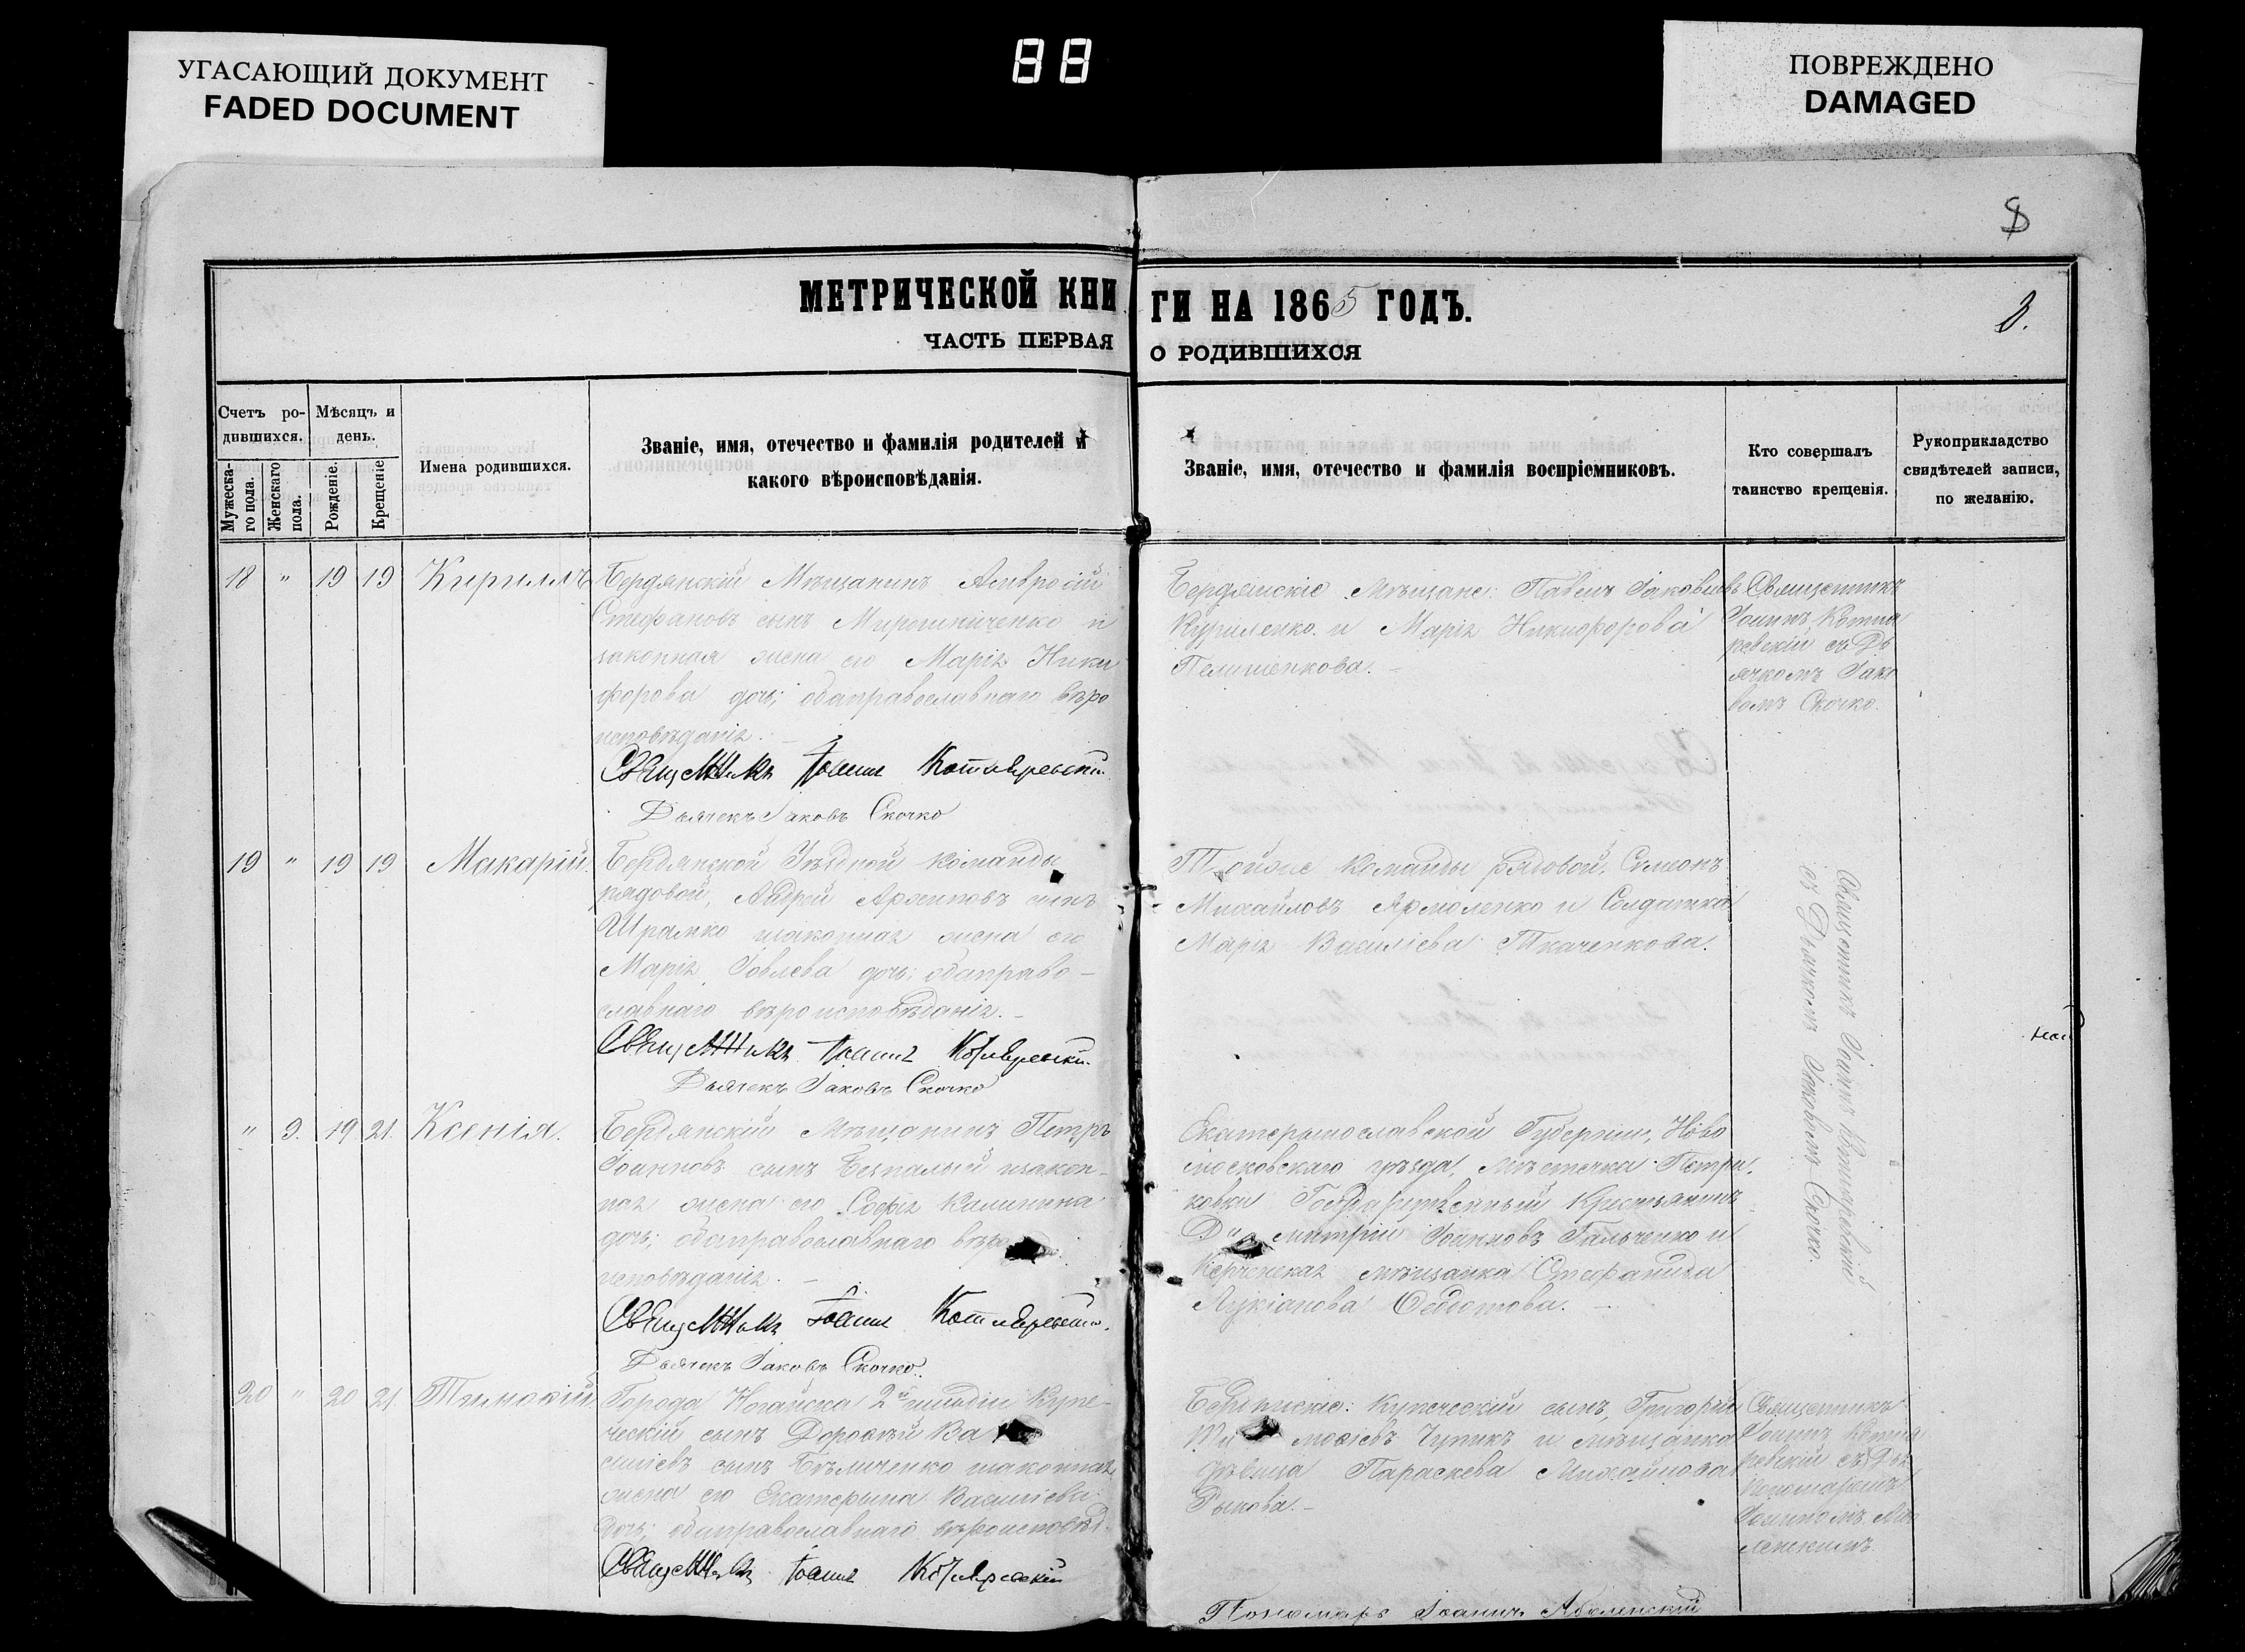 УГАСАЮЩИЙ ДОКУМЕНТ
FADED DOCUMENT
88
ПОВРЕЖДЕНО
DAMAGED
8
МЕТРИЧЕСКОЙ КНИ
ГИ НА 1865 ГОДЪ.
8.
ЧАСТЬ ПЕРВАЯ
О РОДИВШИХСЯ
Счетъ ро-
дившихся.
Мужеска-
го пола.
Женскаго
пола.
Мѣсяцъ и
день.
Рожденіе.
Крещеніе
Имена родившихся.
Званіе, имя, отечество и фамилія родителей и
какого вѣроисповѣданія.
Званіе, имя, отечество и фамилія воспріемниковъ.
Кто совершалъ
таинство крещенія.
Рукоприкладство
свидѣтелей записи,
по желанію.
18 " 19 19 Кириллъ
Бердянскій Мѣщанинъ Амвросій
Стефановъ сынъ Мирошниченко и
законная жена его Марія Ники
форова дочь; оба православнаго вѣро
исповѣданія. —
Священникъ Іоаннъ Котляревскій
Дьячекъ Іаковъ Скочко
Бердянскіе Мѣщане: Павелъ Іаковлевъ
Куриленко. и Марія Никифорова
Пелипенкова. —
Священникъ
Іоаннъ Котля
ревскій съ Дь
ячкомъ Іако
вомъ Скочко.
19 " 19 19 Макарій.
Бердянской Уѣздной команды
рядовой, Андрей Архиповъ сынъ
Шрамко и законная жена его
Марія Іовлева дочь; оба право-
славнаго вѣроисповѣданія. —
Священникъ Іоаннъ Котляревскій
Дьячекъ Іаковъ Скочко
Тойже Команды рядовой, Симеонъ
Михайловъ Ярмоленко и Солдатка
Марія Василіева Ткаченкова.
Священникъ Іоаннъ Котляревскій
съ Дьячкомъ Іаковомъ Скочко.
" 9. 19 21. Ксенія.
Бердянскій Мѣщанинъ Петръ
Іоанновъ сынъ Безпалый и закон-
ная жена его Софія Калинина
дочь; оба православнаго вѣро
исповѣданія. —
Священникъ Іоаннъ Котляревскій.
Дьячекъ Іаковъ Скочко.
Екатеринославской Губерніи, Ново
московскаго уѣзда, мѣстечка Петри
ковки Государственный Крестьянинъ
Димитрій Іоанновъ Гальченко и
Керченская мѣщанка Стефанида
Лукіанова Ѳедотова. —
20 " 20 21. Тимоѳій
Города Ногайска 2й гильдіи Купе-
ческій сынъ Дороѳей Ва
силіевъ сынъ Бѣличенко и законная
жена его Екатерина Василіева
дочь; оба православнаго вѣроисповѣд.
Священникъ Іоаннъ Котляревскій
Бердянскіе: Купеческій сынъ, Григорій
Тимоѳіевъ Чупикъ и мѣщанка
дѣвица Параскева Михайлова
Рыкова. —
Священникъ
Іоаннъ Котля
ревскій съ
Пономаремъ
Іоанномъ
Пономарь Іоаннъ